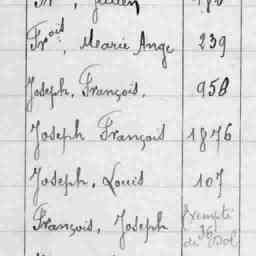 Frois, Marie Ange 239
Joseph, François. 958
Joseph François 1876
Joseph, Louis 107
François, Joseph Exempté